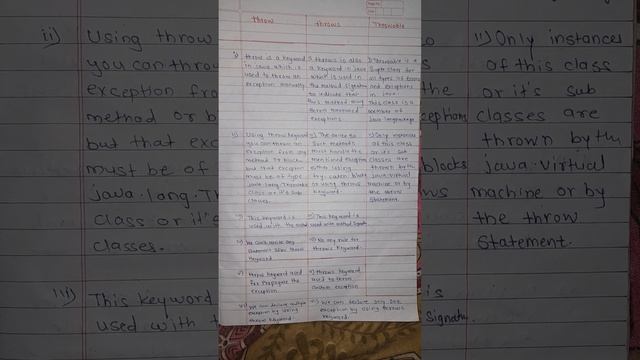 throw
throws
Throwable
i) throw is a keyword
in Java which is
used to throw an
exception manually.
i) throws is also
a keyword in java
which is used in
the method signature
to indicate that
this method may
throw mentioned
exceptions
i) Throwable is a
super class for
all types of errors
and exceptions
in java.
This class is a
member of
java.lang package
ii) Using throw keyword
you can throw an
exception from any
method or block
but that exception
must be of type
java.lang.Throwable
class or it's sub
classes.
ii) The caller to
such methods
must handle the
mentioned exceptions
either using
try-catch blocks
or using throws
keyword.
ii) Only instances
of this class
or it's sub
classes are
thrown by the
java virtual
machine or by
the throw
statement.
iii) This keyword is
used with the
iii) This keyword is
used with method signature
iv) We can't write any
statement after throw
keyword
iv) No any rule for
throws keyword.
v) throw keyword used
for propagate the
exception
v) throws keyword
used to
exception
vi) We can declare multiple
exception by using
throw keyword.
vi) We can declare only one
exception by using throws
keyword.
ii) Using throw
you can throw
exception fro
method or b
but that exc
must be of
java.lang.T
class or it's
classes.
iii) This keyword
used with t
ceptions
blocks
ii) Only instances
of this class
or it's sub
classes are
thrown by th
java virtual
machine or by
the throw
Statement.
is
Signatu